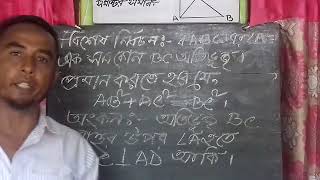 A B
বিশেষ নির্বচন:- ABC এর ∠A=
এক সমকোণ BC অতিভুজ।
প্রমান করতে হবে যে,
AB²+AC² = BC².
অংকন:- অতিভুজ BC
উপর ∠A হতে
⊥ AD আকি।